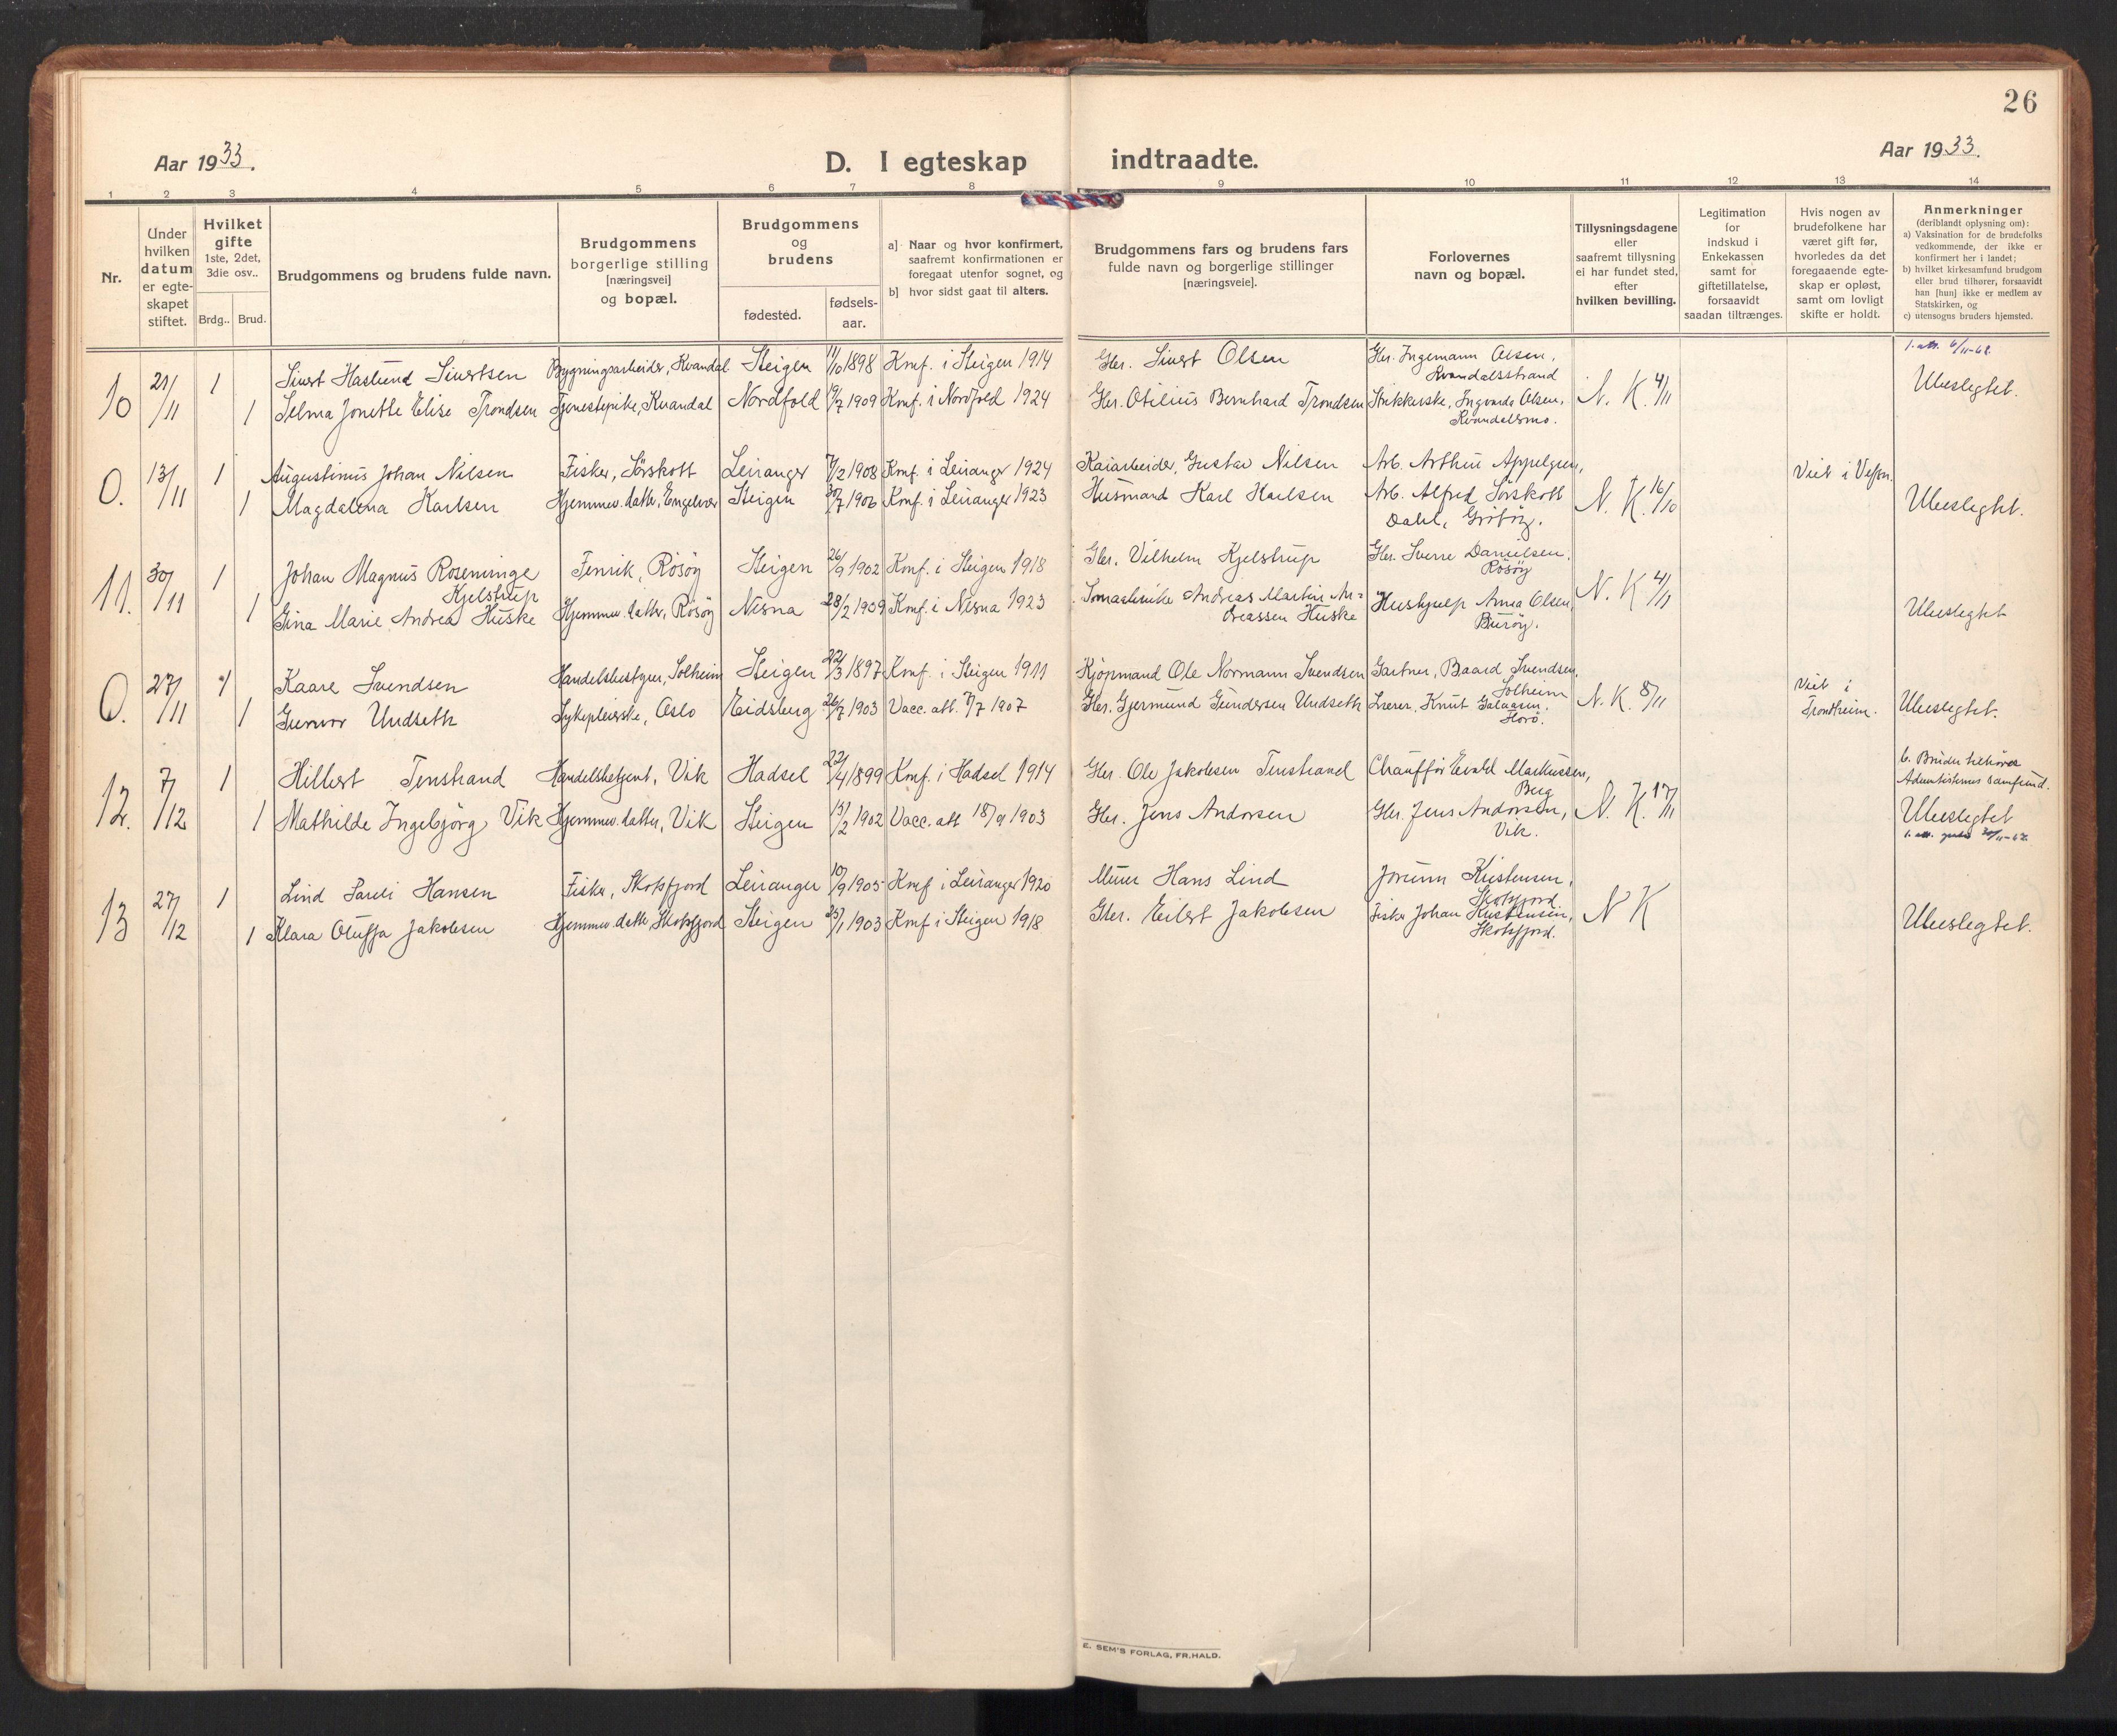 26
Aar 1933.
D. I egteskap indtraadte.
Aar 1933.
1 2 3 4 5 6 7 8 9 10 11 12 13 14
Nr.
Under
hvilken
datum
er egte-
skapet
stiftet.
Hvilket
gifte
1ste, 2det,
3die osv..
Brdg.. Brud.
Brudgommens og brudens fulde navn.
Brudgommens
borgerlige stilling
[næringsvei]
og bopæl.
Brudgommens
og
brudens
fødested.
fødsels-
aar.
a] Naar og hvor konfirmert,
saafremt konfirmationen er
foregaat utenfor sognet, og
b] hvor sidst gaat til alters.
Brudgommens fars og brudens fars
fulde navn og borgerlige stillinger
[næringsveie].
Forlovernes
navn og bopæl.
Tillysningsdagene
eller
saafremt tillysning
ei har fundet sted,
efter
hvilken bevilling.
Legitimation
for
indskud i
Enkekassen
samt for
giftetillatelse,
forsaavidt
saadan tiltrænges.
Hvis nogen av
brudefolkene har
været gift før,
hvorledes da det
foregaaende egte-
skap er opløst,
samt om lovligt
skifte er holdt.
Anmerkninger
(deriblandt oplysning om):
a) Vaksination for de brudefolks
vedkommende, der ikke er
konfirmert her i landet;
b) hvilket kirkesamfund brudgom
eller brud tilhører, forsaavidt
han [hun] ikke er medlem av
Statskirken, og
c) utensogns bruders hjemsted.
10 21/11 1 Sivert Haslund Sivertsen Bygningsarbeider, Kvandal Steigen 11/10 1898 Konf. i Steigen 1914 Gbr. Sivert Olsen Gbr. Ingemann Olsen,
Kvandalsstrand
N. K. 4/11 Ubeslegtet.
1 Selma Jonette Elise Trondsen Tjenestepike, Kvandal Nordfold 19/7 1909 Konf. i Nordfold 1924 Gbr. Otilius Bernhard Trondsen Strikkerske, Ingvarda Olsen,
Kvandalsmo.
0. 13/11 1 Augustinus Johan Nilsen Fisker, Sørskott Leiranger 7/2 1908 Konf. i Leiranger 1924 Kaiarbeider, Gustav Nilsen Arb. Arthur Appelgren, Viet i Vefsn.
1 Magdalena Karlsen Hjemmev. datter, Engelvær Steigen 30/7 1906 Konf. i Leiranger 1923 Husmand Karl Karlsen Arb. Alfred Sørskott
Dahl, Grøtøy.
N. K. 16/10 Ubeslegtet.
11. 30/11 1 Johan Magnus Roseninge
Kjelstrup
Fenrik, Røsøy Steigen 26/9 1902 Konf. i Steigen 1918 Gbr. Vilhelm Kjelstrup Gbr. Sverre Danielsen,
Røsøy
N. K. 4/11
1 Gina Marie Andrea Huske Hjemmev. datter, Røsøy Nesna 28/2 1909 Konf. i Nesna 1923 Andreas Martin An-
dreassen Huske
Hushjelp Anna Olsen,
Burøy.
Ubeslegtet
0. 27/11 1 Kaare Svendsen Handelsbestyrer, Solheim Steigen 22/3 1897 Konf. i Steigen 1911 Kjøpmand Ole Normann Svendsen Gartner, Baard Svendsen,
Solheim
Viet i
Trondheim.
1 Gunvor Undseth Sykepleierske, Oslo Eidsberg 26/7 1903 Vacc. att. 7/7 1907 Gbr. Gjermund Gundersen Undseth Lærer, Knut
N. K. 8/11 Ubeslegtet.
12. 7/12 1 Hilbert Tenstrand Handelsbetjent, Vik Hadsel 22/4 1899 Konf. i Hadsel 1914 Gbr. Ole Jakobsen Tenstrand Chauffør Evald Markussen,
Berg
b. Bruden tilhører
Adventisternes samfund.
1 Mathilde Ingebjørg Vik Hjemmev. datter, Vik Steigen 15/2 1902 Vacc. att 18/9 1903 Gbr. Jens Andorsen Gbr. Jens Andorsen,
Vik.
N. K. 17/11 Ubeslegtet
13 27/12 1 Lind Pareli Hansen Fisker, Skotsfjord Leiranger 10/9 1905 Konf i Leiranger 1920 Murer Hans Lind Jorunn Kristensen,
Skotsfjord.
N K
1 Klara Oluffa Jakobsen Hjemmev. datter, Skotsfjord Steigen 23/1 1903 Konf i Steigen 1918 Gbr. Eilert Jakobsen Fisker Johan Kristensen,
Skotsfjord.
Ubeslegtet.
E. SEM'S FORLAG, FR.HALD.